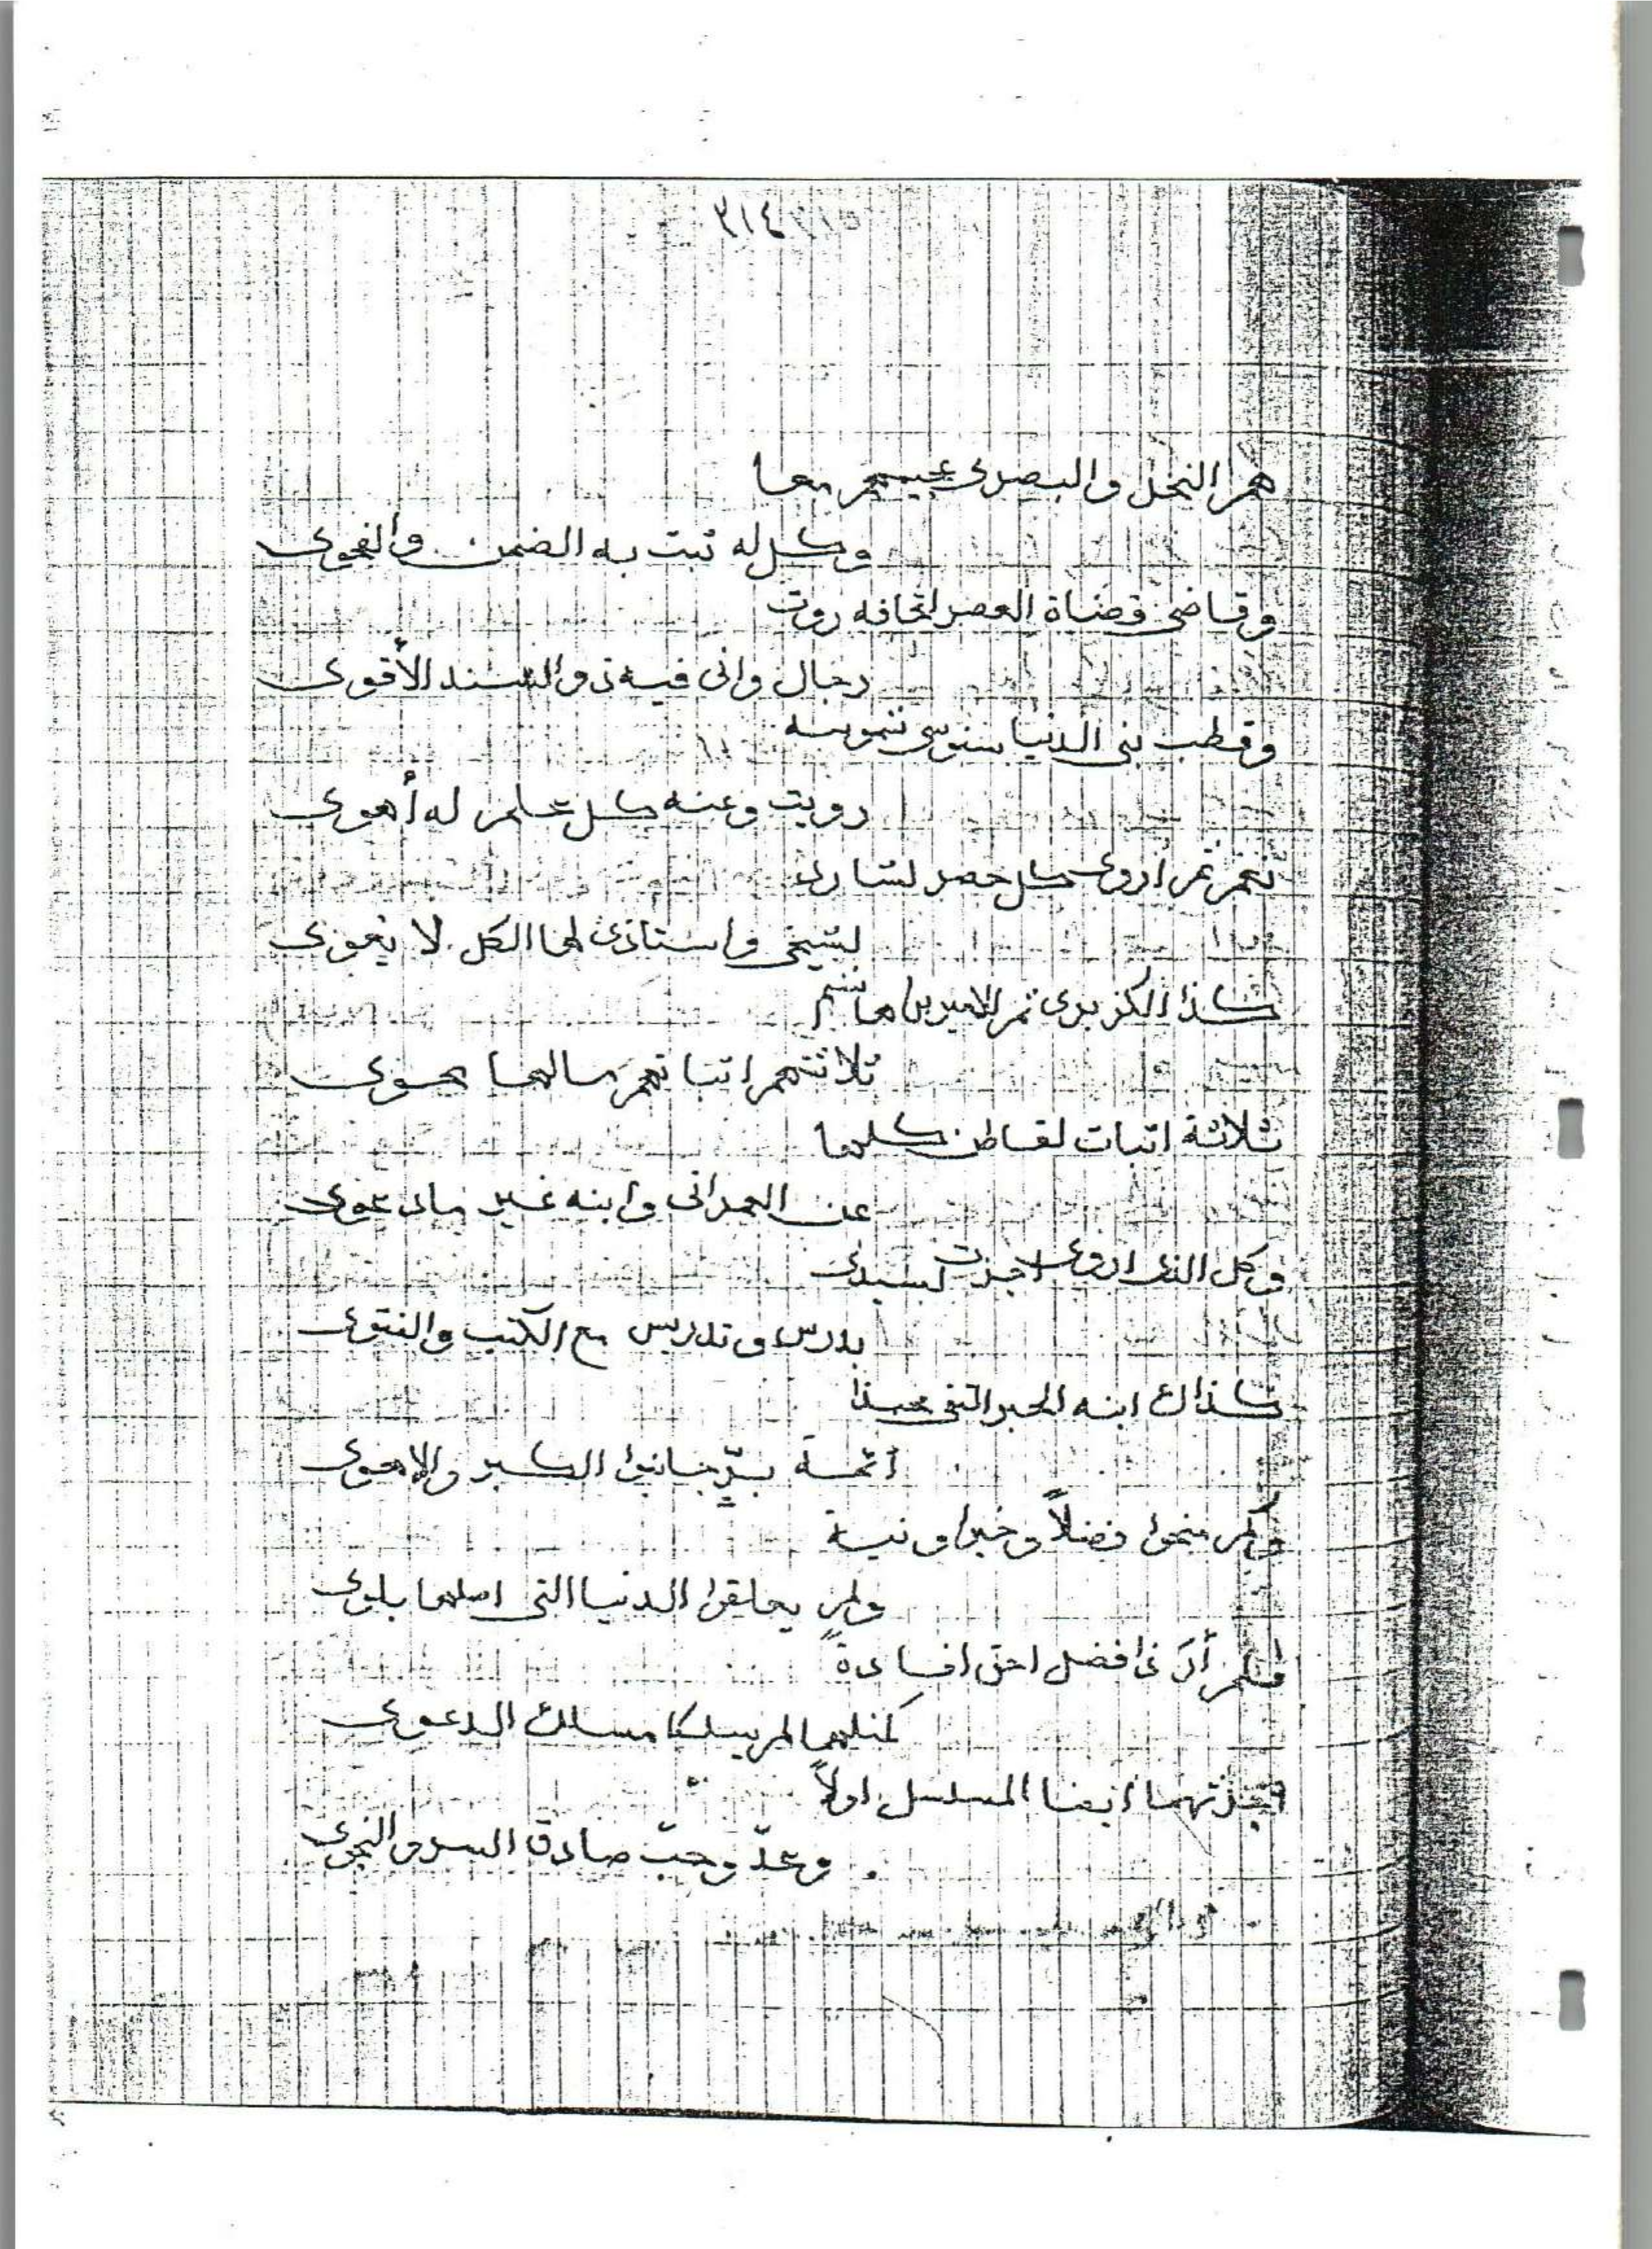 ٣١٤ ٣١٥
هم النخل والبصرى عجيمهم معا
وكل له ثبت به الضمن والفحوى
وقاضى قضاة العصر اتحافه روت
رجال وانى فيه ذو السند الأقوى
وقطب بنى الدنيا سنوسى شموسه
رويت وعنه كل علم له أهوى
نعم ثم أروى كل حصر لشارد
لشيخى واستاذى لها الكل لا يغوى
كذا الكزبرى ثم الامير بن هاشم
ثلاثتهم اثباتهم مالها محوى
ثلاثة اثبات لقاطن كلها
عن العمرانى وابنه غير مادعوى
وكل الذى اروى اجزت لسيدى
بدرس وتدريس مع الكتب والفتوى
كذاك ابنه الحبر التقى محمدا
أئمة بر جانبوا الكبر والاهوى
وكم منحوا فضلاً وخيرا ونية
ولم يعلقوا الدنيا التى اصلها بلوى
فلم أر ذا فضل احق افادة
كمثلهما لم يسلكا مسلك الدعوى
اجزتهما أيضا المسلسل اولاً
وعدّ وحبّ صادق السر والنجوى